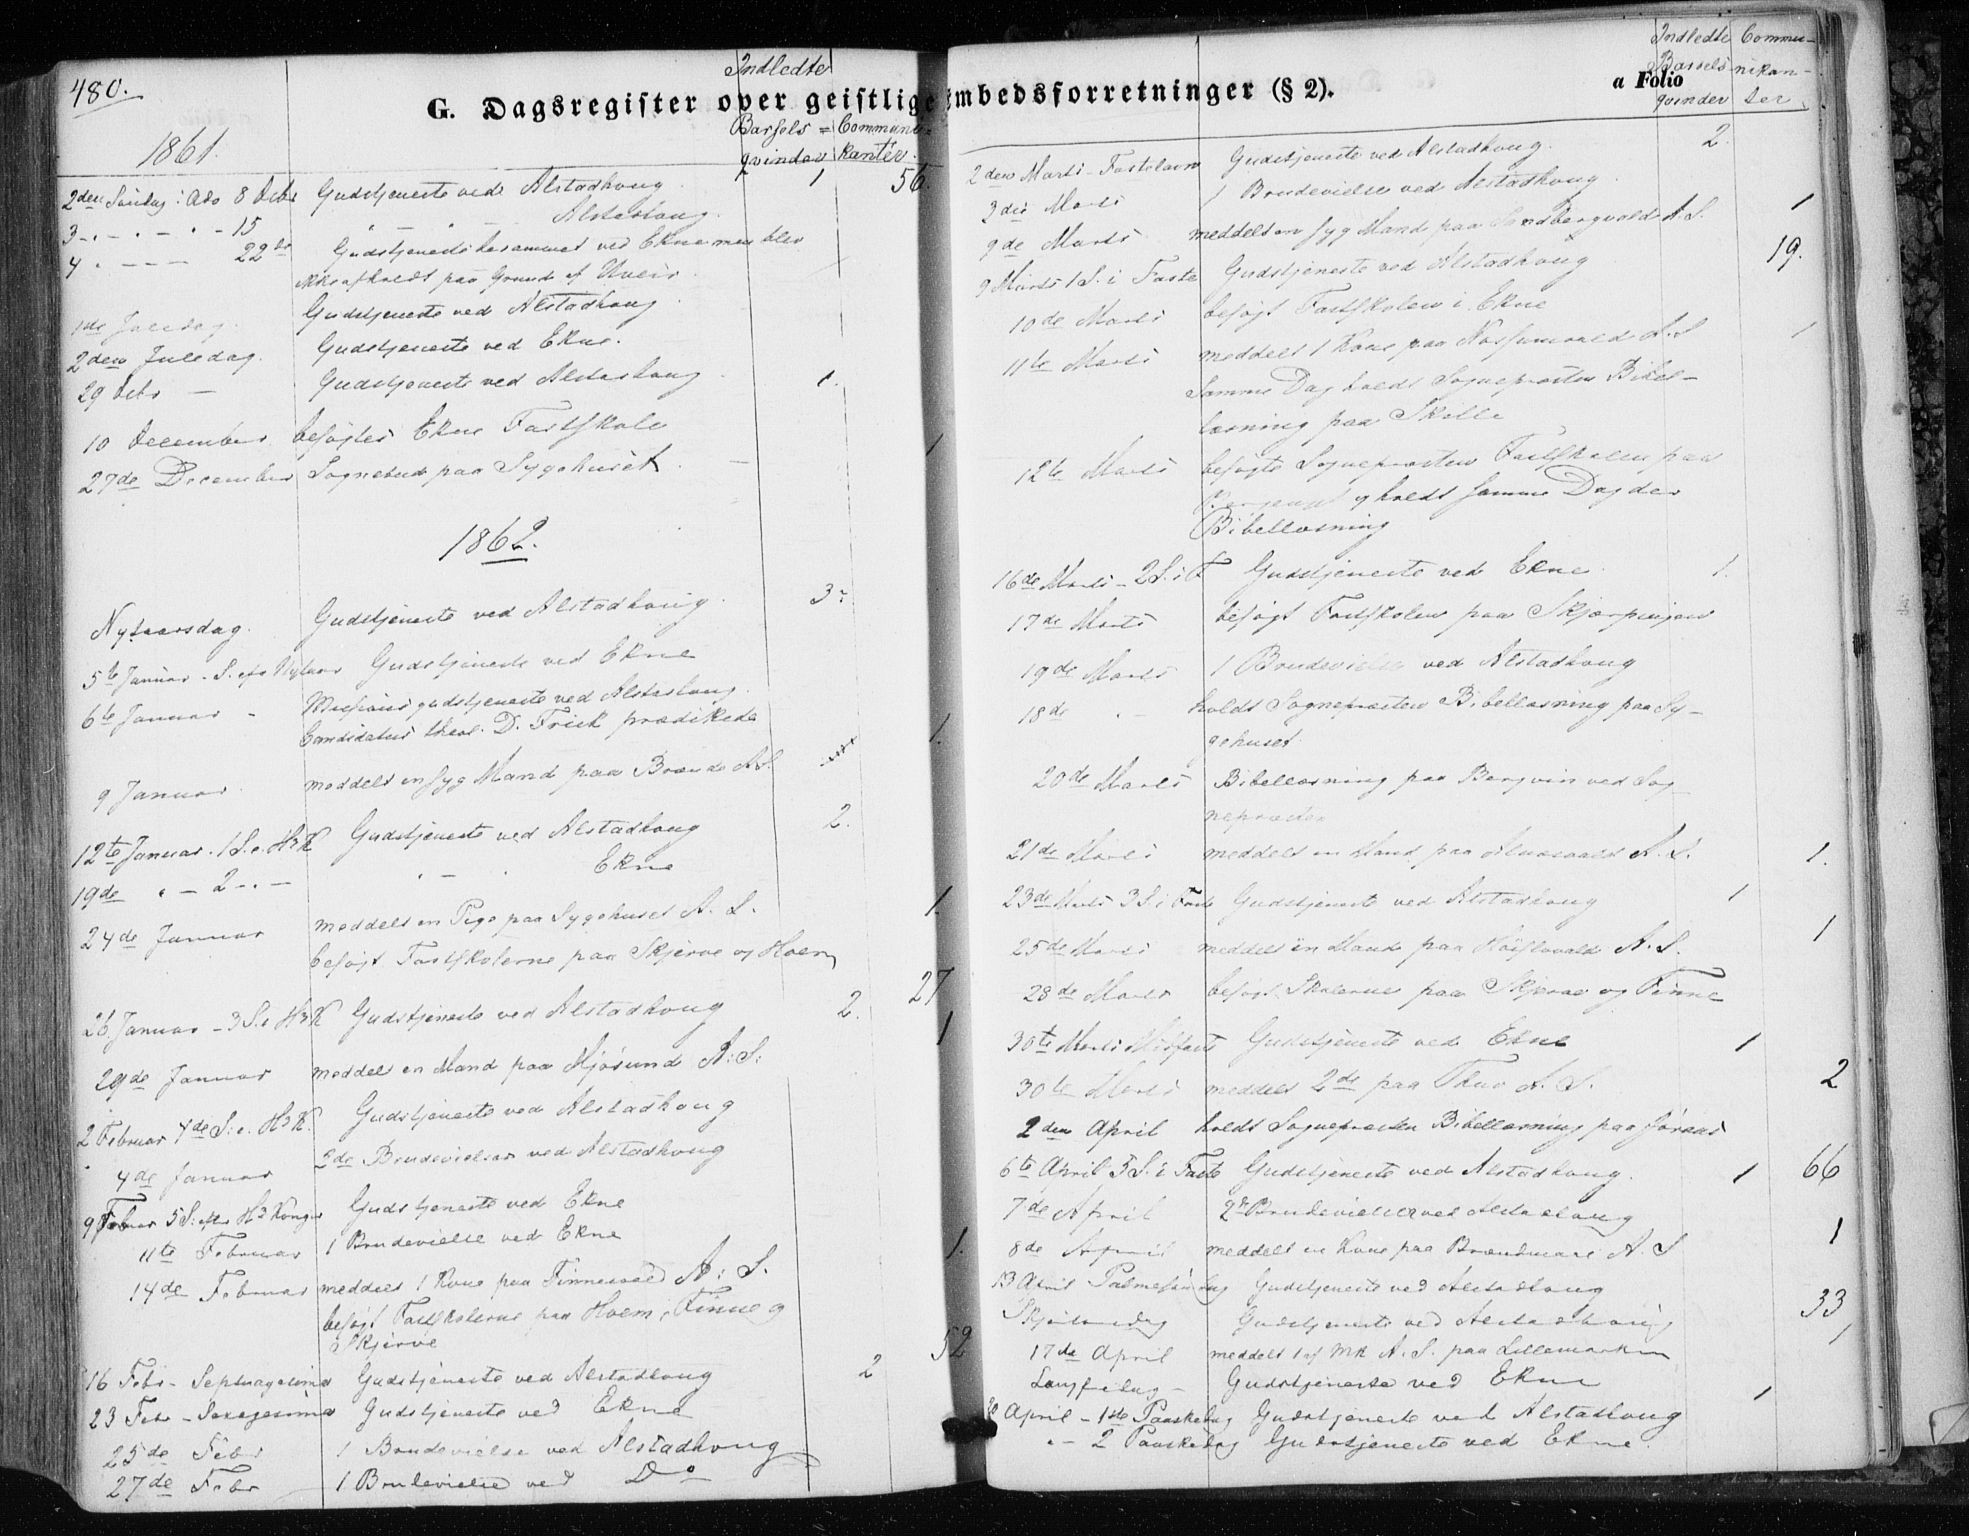 480.
G. Dagsregister over geistlige Embedsforretninger (§ 2).
Indledte
Barsels= Communi=
qvinder kanter.
1861.
2den Søndag i Adv 8 Decbr Gudstjeneste ved Alstadhoug 1 56.
3 - " - " - 15 " - " - Alstadhoug.
4 " - - - 22de Gudstjeneste berammet ved Ekne men blev
ikke afholdt paa Grund af Uveir.
1ste Juledag. Gudstjeneste ved Alstadhoug
2den Juledag. Gudstjeneste ved Ekne.
29 Decbr - Gudstjeneste ved Alstadhoug 1.
10 December besøgtes Ekne Fastskole
27de December Sognebud paa Sygehuset. - 1.
1862.
Nytaarsdag. Gudstjeneste ved Alstadhoug. 3
5te Januar - S. eftr Nytaar Gudstjeneste ved Ekne
6te Januar - Missionsgudstjeneste ved Alstadhoug.
Candidatus theol. D. Frick prædikede 1.
9 Januar. meddelt en syg Mand paa Brænde A.S.
12te Januar. 1 S. e. H3K Gudstjeneste ved Alstadhoug 2.
19de " - 2 - " - " - " Ekne
24de Januar meddelt en Pige paa Sygehuset A. S. 1.
besøgt Fastskolerne paa Skjerve og Hoem
26 Januar - 3 S. e H3K Gudstjeneste ved Alstadhoug 2. 27
29de Januar meddelt en Mand paa Mjøsund A: S: 1
2 Februar 4de S: e. H3K. Gudstjeneste ved Alstadhoug
4de Januar 2de Brudevielser ved Alstadhoug
9 Februar 5 S: efter H3 Konger Gudstjeneste ved Ekne
11te Februar 1 Brudevielse ved Ekne
14de Februar meddelt 1 Kone paa Finnesvald A: S. 1.
besøgt Fastskolerne paa Hoem, Finne og
Skjerve
16 Febr - Septuagesima Gudstjeneste ved Alstadhoug 2 52
23 Febr - Sexagesima Gudstjeneste ved Ekne
25de Febr 1 Brudevielse ved Alstadhoug
27de Febr 1 Brudevielse ved Do
a Folio
Indledte Commu-
Barsels nikan-
qvinder ter
2den Marts - Fastelavn Gudstjeneste ved Alstadhoug. 2.
3die Marts 1 Brudevielse ved Alstadhoug.
9de Marts meddelt en syg Mand paa Sandbergvald A.S. 1
9 Marts 1 S. i Faste Gudstjeneste ved Alstadhoug 19.
10de Marts besøgt Fastskolen i Ekne
11te Marts meddelt 1 Kone paa A.S 1
Samme Dag holdt Sognepræsten Bibel-
læsning paa Skille
12te Marts besøgte Sognepræsten Fastskolen paa
og holdt samme Dag der
Bibellæsning
16de Marts - 2 S. i F Gudstjeneste ved Ekne. 1.
17de Marts besøgt Fastskolen paa
19de Marts 1 Brudevielse ved Alstadhoug
18de " - holdt Sognepræsten Bibellæsning paa Sy-
gehuset.
20de Marts Bibellæsning paa Bergvin ved Sog
nepræsten
21de Marts meddelt en Mand paa A. S. 1.
23de Marts 3 S. i Faste Gudstjeneste ved Alstadhoug 1
25de Marts meddelt en Mand paa A. S. 1
28de Marts besøgt Skolerne paa Skjerve og Finne
30te Marts Midfaste Gudstjeneste ved Ekne 1
30te Marts meddelt 2de paa Thuv A. S. 2
2den April holdt Sognepræsten Bibellæsning paa
6te April 5 S. i Faste Gudstjeneste ved Alstadhoug. 1 66
7de April 2de Brudevielser ved Alstadhoug
8de April meddelt en Kone paa A. S 1
13 April Palmesøndag Gudstjeneste ved Alstadhoug
Skjærtorsdag Gudstjeneste ved Alstadhoug 33
17de April meddelt 1 af MK A. S. paa Lillemarken 1
Langfredag - Gudstjeneste ved Ekne
20 April - 1ste Paaskedag Gudstjeneste ved Alstadhoug 1
" - 2 Paaskedag Gudstjeneste ved Ekne.